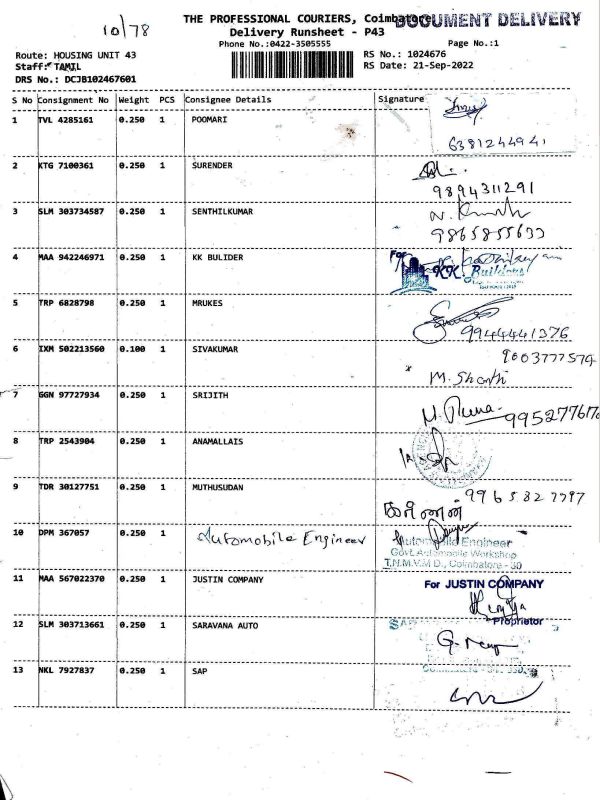 10/78
THE PROFESSIONAL COURIERS, Coimbatore
DOCUMENT DELIVERY
Delivery Runsheet - P43
Phone No.:0422-3505555
Page No.:1
Route: HOUSING UNIT 43
RS No.: 1024676
Staff: TAMIL
RS Date: 21-Sep-2022
DRS No.: DCJB102467601
S No Consignment No Weight PCS Consignee Details Signature
1 TVL 4285161 0.250 1 POOMARI
6381244941
2 KTG 7100361 0.250 1 SURENDER
9894311291
3 SLM 303734587 0.250 1 SENTHILKUMAR
9865855633
4 MAA 942246971 0.250 1 KK BULIDER For
KK Builders
5 TRP 6828798 0.250 1 MRUKES
9944441376
6 IXM 502213560 0.100 1 SIVAKUMAR 9003777574
M. Shanthi
7 GGN 97727934 0.250 1 SRIJITH
8 TRP 2543904 0.250 1 ANAMALLAIS
9 TDR 30127751 0.250 1 MUTHUSUDAN
10 DPM 367057 0.250 1 Automobile Engineer
Automobile Engineer
Govt. Automobile Workshop
T.N.M.V.M.D., Coimbatore - 30
11 MAA 567022370 0.250 1 JUSTIN COMPANY For JUSTIN COMPANY
Proprietor
12 SLM 303713661 0.250 1 SARAVANA AUTO
13 NKL 7927837 0.250 1 SAP